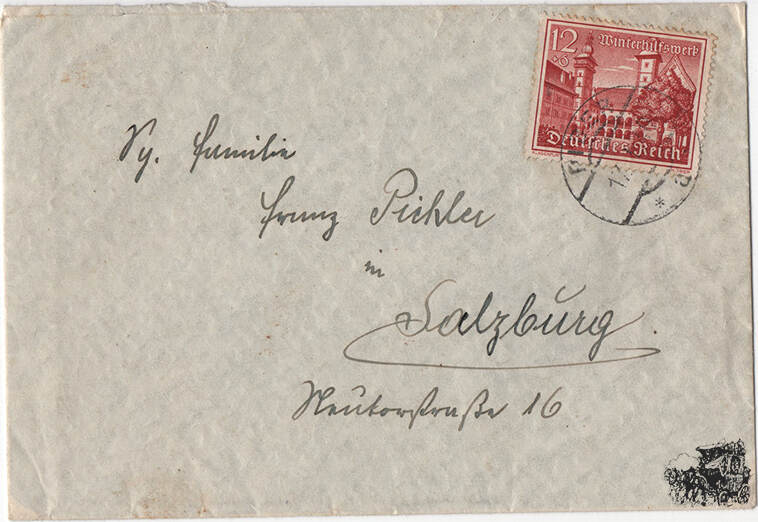 12
+6
Winterhilfswerk
Deutsches Reich
Familie
Franz Pichler
in
Salzburg.
Neutorstraße 16